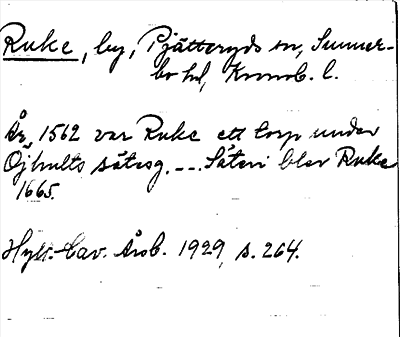 Ruke, by, Pjätteryds sn, Sunner-
bo hd, Kronob. l.
År 1562 var Ruke ett torp under
Öjhults sätesg. --- Säteri blev Ruke
1665.
Hylt.-Cav. Årsb. 1929, s. 264.